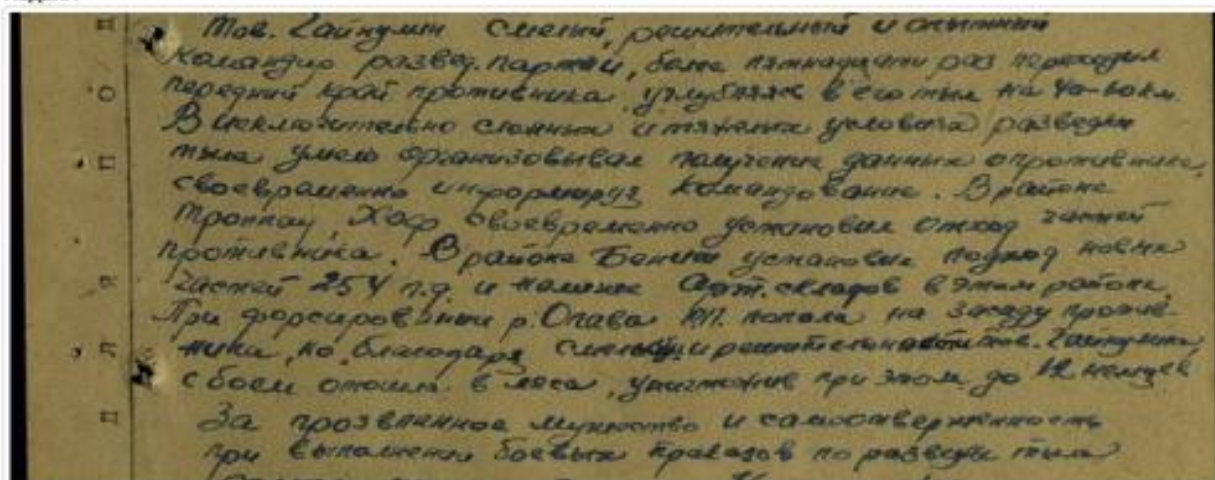 Тов. Гайнулин смелый, решительный и опытный
командир развед. партии, более пятнадцати раз переходил
передний край противника, углубляясь в его тыл на 40-60км.
В исключительно сложных и тяжелых условиях разведки
тыла умело организовывал получение данных о противнике,
своевременно информируя командование. В районе
Троппау, Хоф своевременно установил отход частей
противника. В районе Бениш установил подход новых
частей 254 п.д. и наличие арт. складов в этом районе.
При форсировании р. Опава попала на засаду против-
ника, но благодаря смелости и решительности тов. Гайнулина
с боем отошла в леса, уничтожив при этом до 12 немцев
За проявленное мужество и самоотверженность
при выполнении боевых приказов по разведке тыла